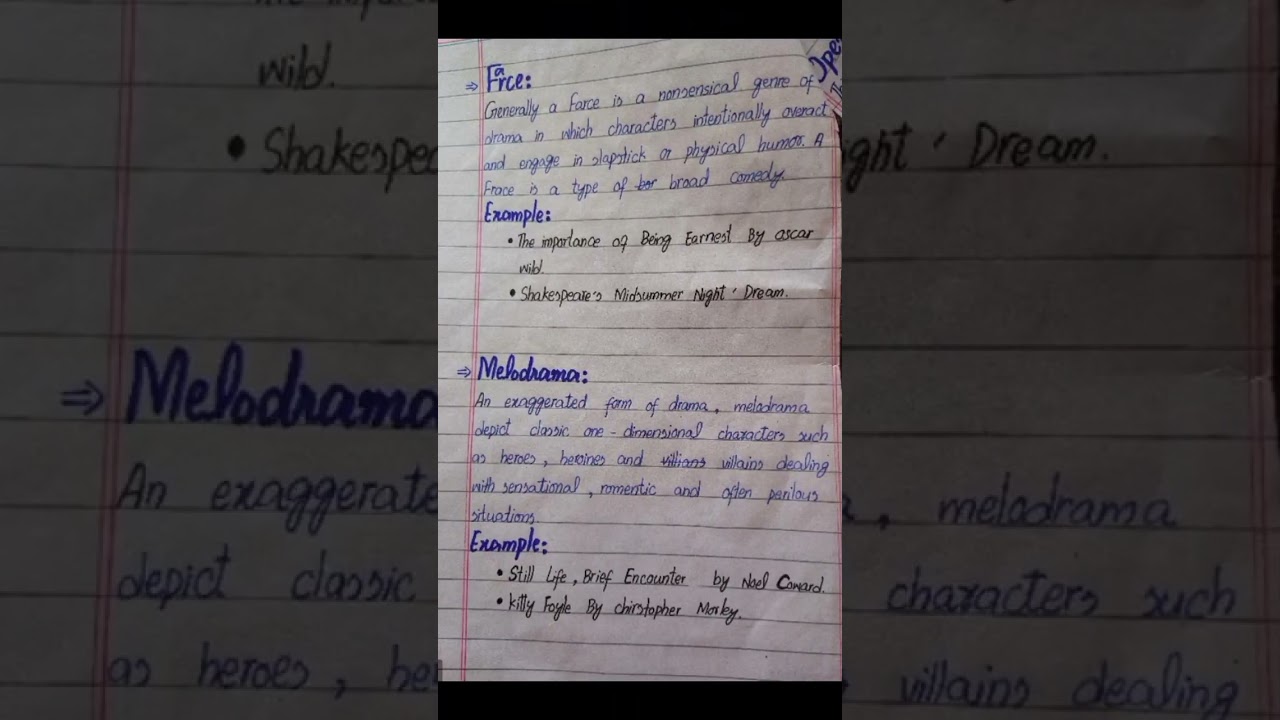 ⇒ Farce:
Generally a Farce is a nonsensical genre of
drama in which characters intentionally overact
and engage in slapstick or physical humor. A
Frace is a type of bor broad comedy.
Example:
• The importance of Being Earnest By oscar
wild.
• Shakespeare's Midsummer Night ' Dream.
⇒ Melodrama:
An exaggerated form of drama, melodrama
depict classic one-dimensional characters such
as heroes, heroines and villians villains dealing
with sensational, romentic and often perilous
situations.
Example:
• Still Life, Brief Encounter by Noel Coward.
• Kitty Foyle By chirstopher Morley.
wild.
• Shakespea
ght ' Dream.
⇒ Melodrama
An exaggerate
, melodrama
depict classic
characters such
as heroes, he
villains dealing